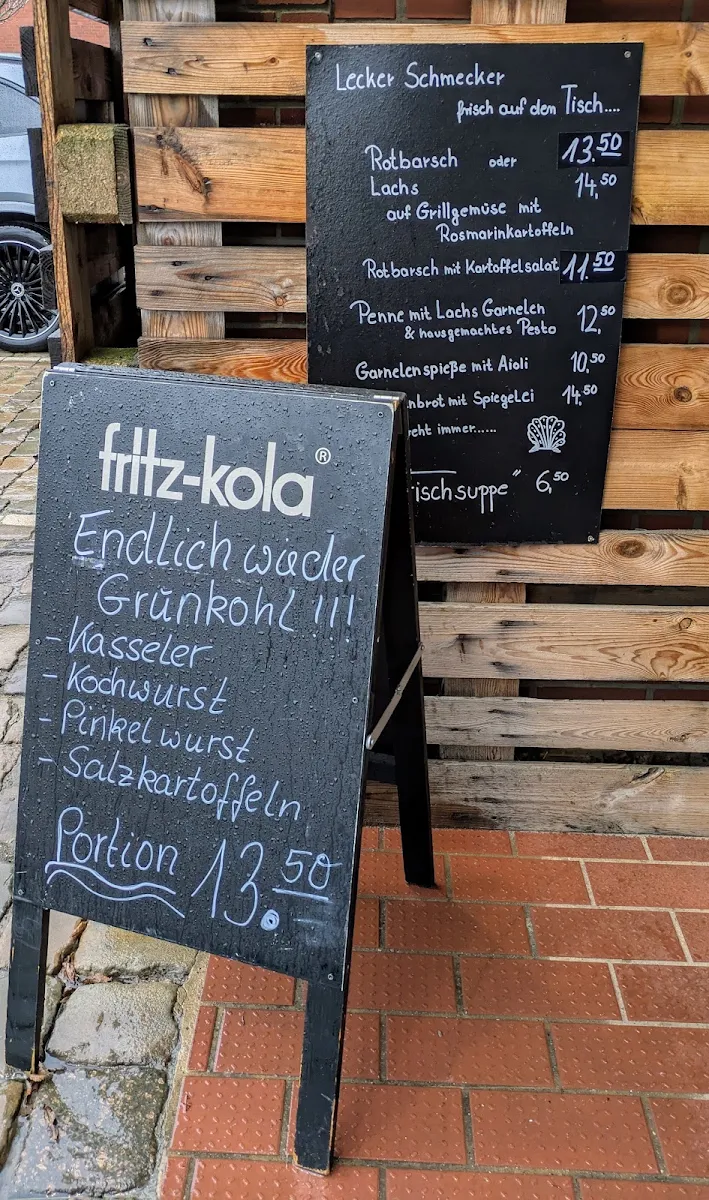 Lecker Schmecker
frisch auf dem Tisch....
Rotbarsch oder 13.50
Lachs 14,50
auf Grillgemüse mit
Rosmarinkartoffeln
Rotbarsch mit Kartoffelsalat 11.50
Penne mit Lachs Garnelen
& hausgemachtes Pesto 12,50
Garnelenspieße mit Aioli 10,50
nbrot mit Spiegelei 14,50
eht immer......
ischsuppe" 6,50
fritz-kola®
Endlich wieder
Grünkohl !!!
- Kasseler
- Kochwurst
- Pinkelwurst
- Salzkartoffeln
Portion 13.50